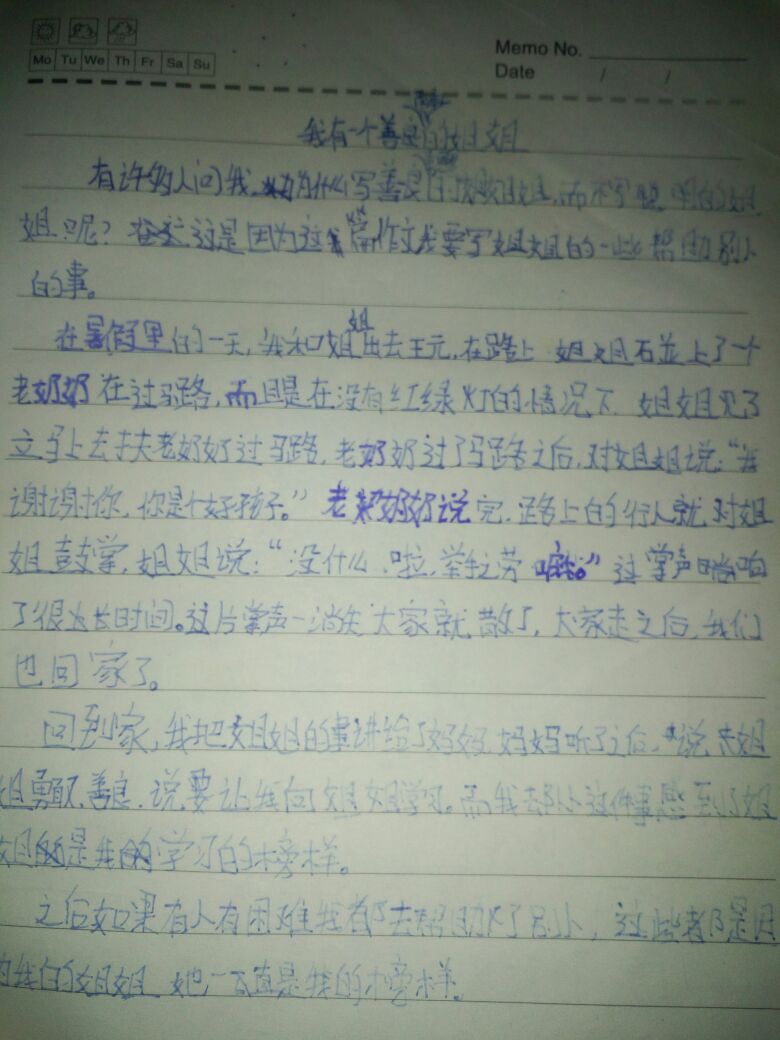 Memo No.
Mo Tu We Th Fr Sa Su
Date / /
我有一个善良的姐姐
有许多人问我,为什么写善良的姐姐,而不写聪明的姐
姐呢?这是因为这篇作文我要写姐姐的一些帮助别人
的事。
在暑假里的一天,我和姐姐出去玩,在路上姐姐碰上了一个
老奶奶在过马路,而且是在没有红绿灯的情况下,姐姐见了
立马上去扶老奶奶过马路,老奶奶过了马路之后,对姐姐说:“
谢谢你,你是个好孩子。”老奶奶说完,路上的行人就对姐
姐鼓掌,姐姐说:“没什么啦,举手之劳”这掌声响
了很长时间。这片掌声一消失大家就散了,大家走之后,我们
也回家了。
回到家,我把姐姐的事讲给了妈妈,妈妈听了之后,说姐
姐勇敢,善良,说要让我向姐姐学习。而我去这件事感到了姐
姐是我学习的榜样。
之后如果有人有困难我都去帮助了别人,这些都是因
为我的姐姐,她一直是我的榜样。